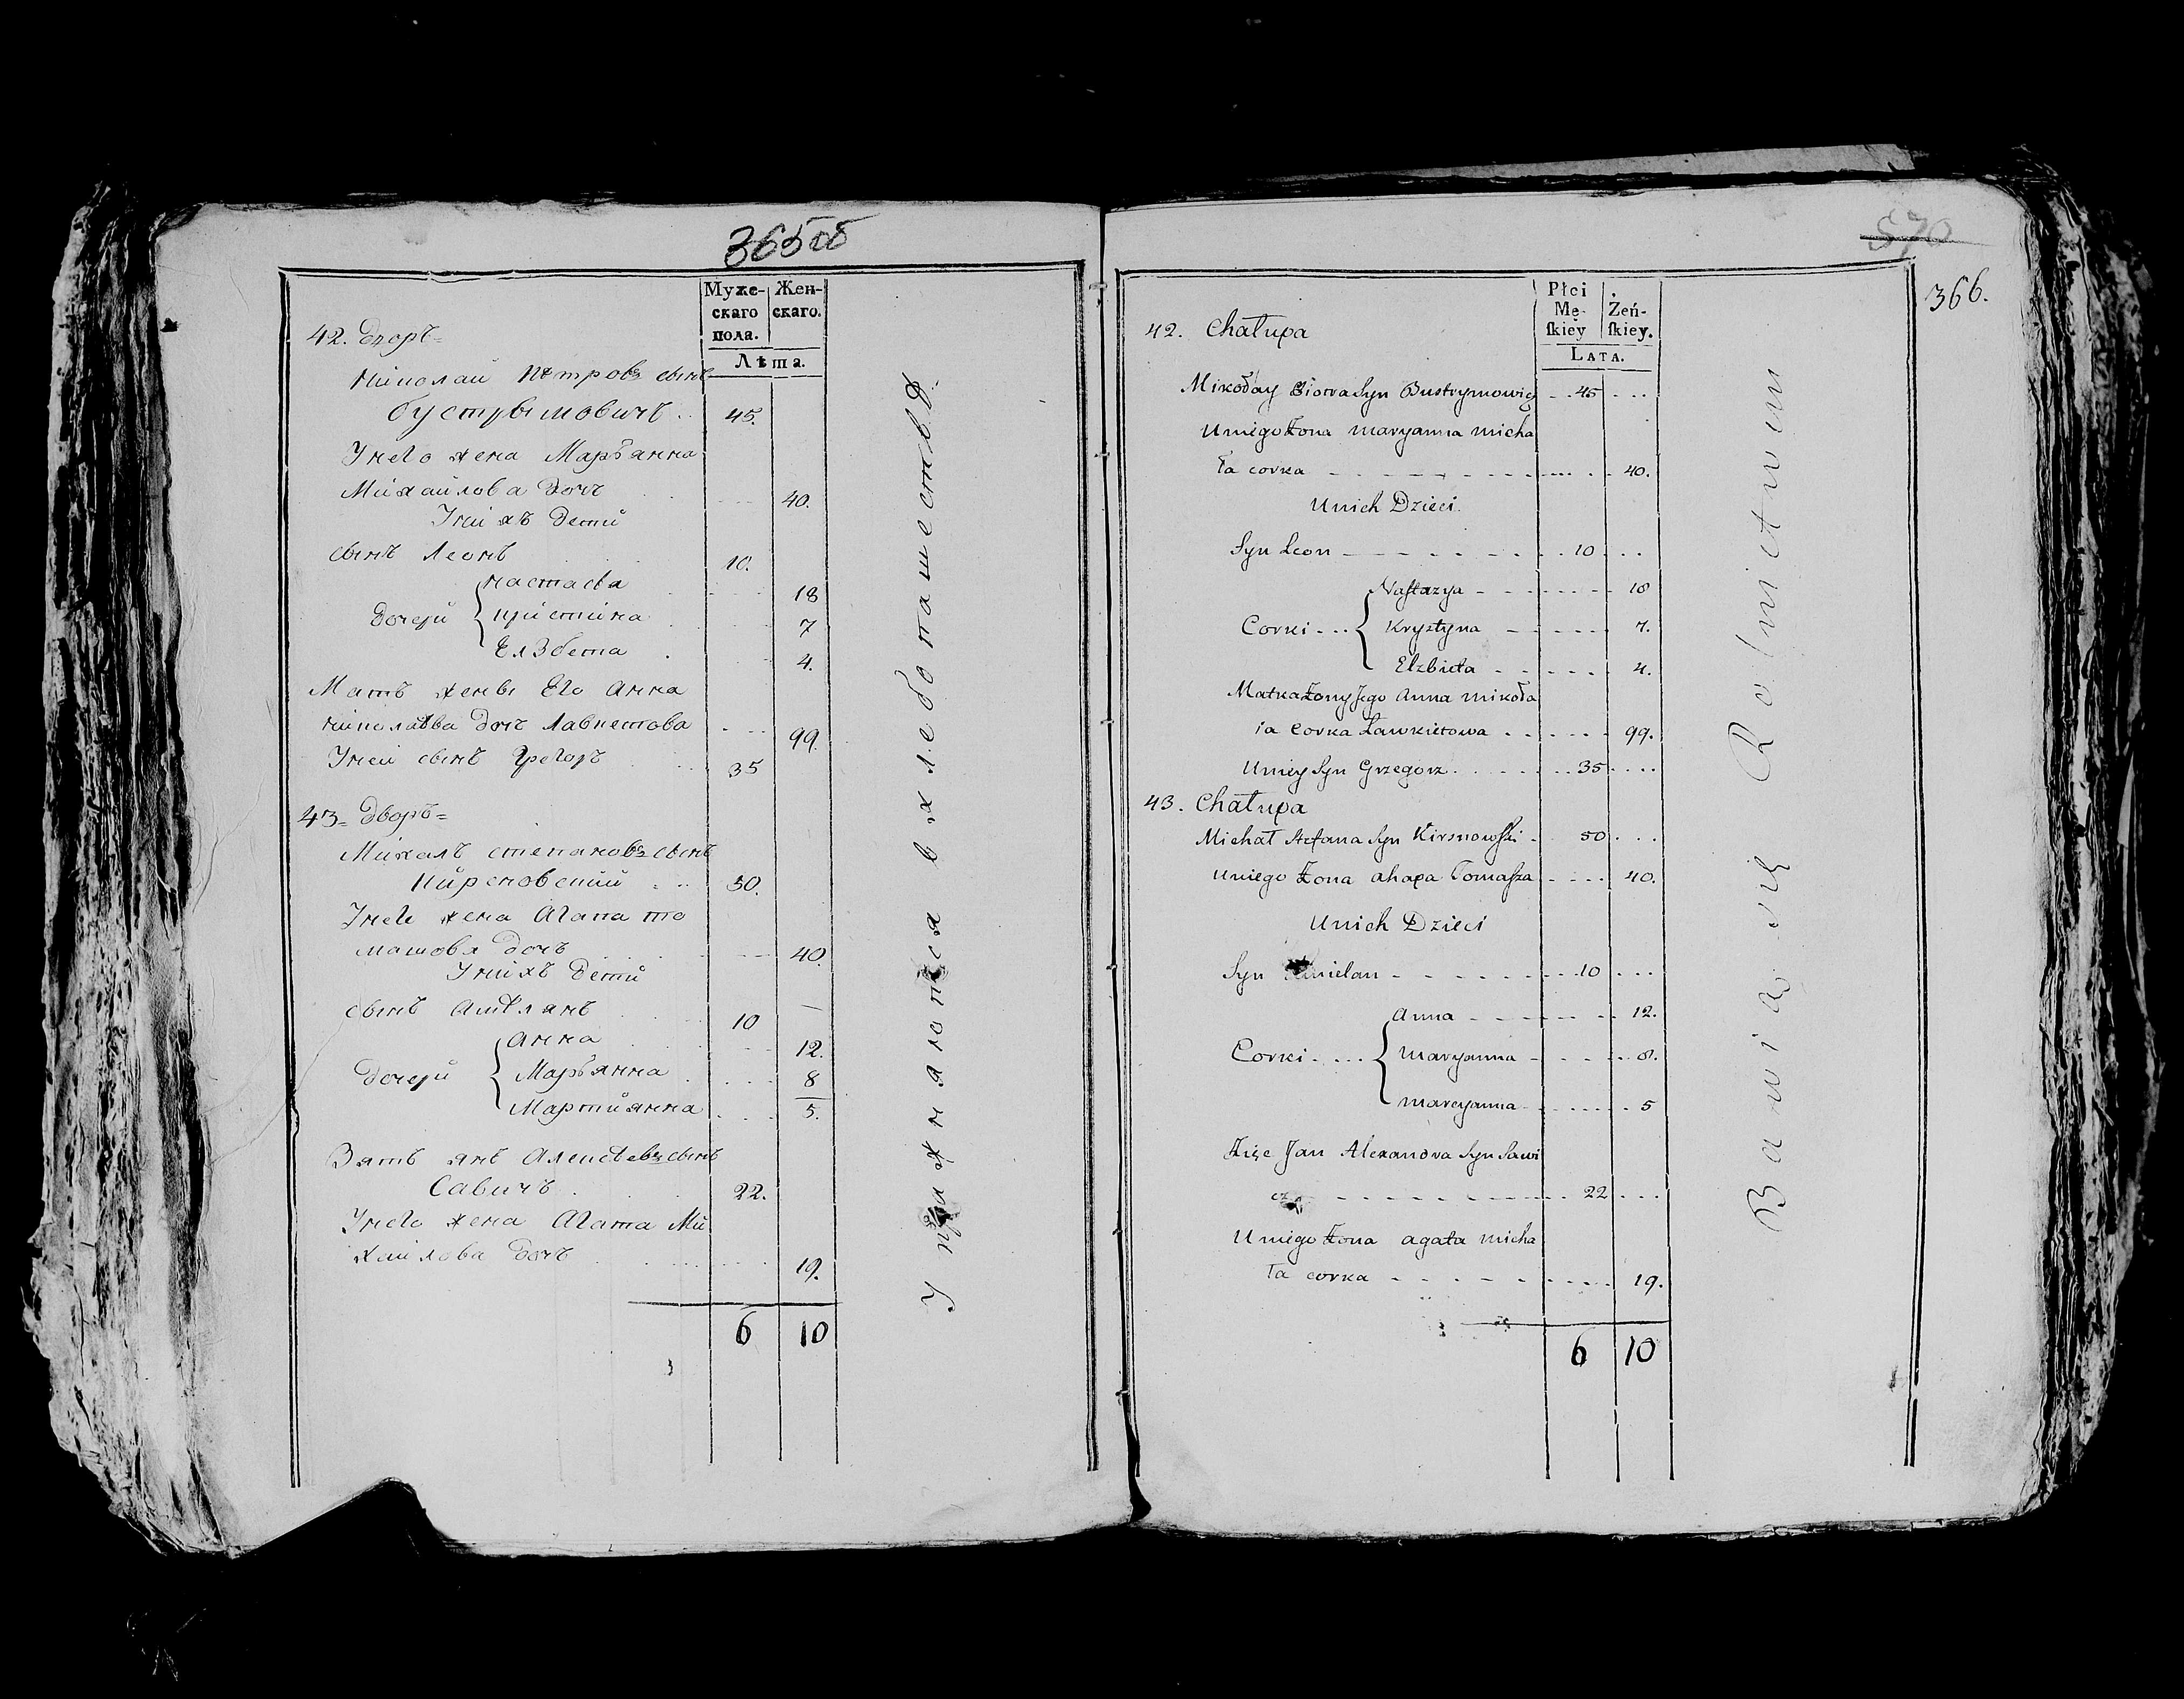 365 об
Муже-
скаго
пола.
Жен-
скаго.
Лѣта.
42. Дворъ=
Миколай Петровъ сынъ
Бустрымовичъ . . 45.
У него жена Марьянна
Михайлова дочь 40.
У них детй
сынъ Леонъ 10.
дочерй
Настасья 18
Кристина 7
Елзбета 4.
Мать жены Его Анна
Миколаева дочь Лавкетова 99.
У неи сынъ Грегоръ 35
43= Дворъ=
Михалъ степановъ сынъ
Кирсновский 50.
У него жена Агапа То
машова дочь 40.
У нихъ детй
сынъ Амелянъ 10 —
дочерй
Анна 12.
Марьянна 8
Мартиянна 5.
Зять янъ Алексѣевъ сынъ
Савичъ 22.
У него жена Агата Ми
хайлова дочь 19.
6 10
Упражняются в хлебопашествѣ.
570
366.
Płci
Mę-
skiey
Żeń-
skiey.
LATA.
42. Chałupa
Mikołay Piotra Syn Bustrymowicz 45
Uniego Żona Maryanna Micha
ła corka 40.
Unich Dzieci
Syn Leon 10
Corki
Nastazya 18
Krystyna 7.
Elzbieta 4.
Matka Żony Jego Anna Mikoła
ia Corka Ławkietowa 99.
Uniey Syn Grzegorz 35
43. Chałupa
Michał Stefana Syn Kirsnowski 50
Uniego Żona Ahapa Tomasza 40.
Unich Dzieci
Syn 10
Corki
Anna 12.
Maryanna 8.
Marcyanna 5
Zięć Jan Alexandra Syn Sawi
cz 22
Uniego Żona Agata Micha
ła corka 19.
6 10
Bawią się Rolnictwem